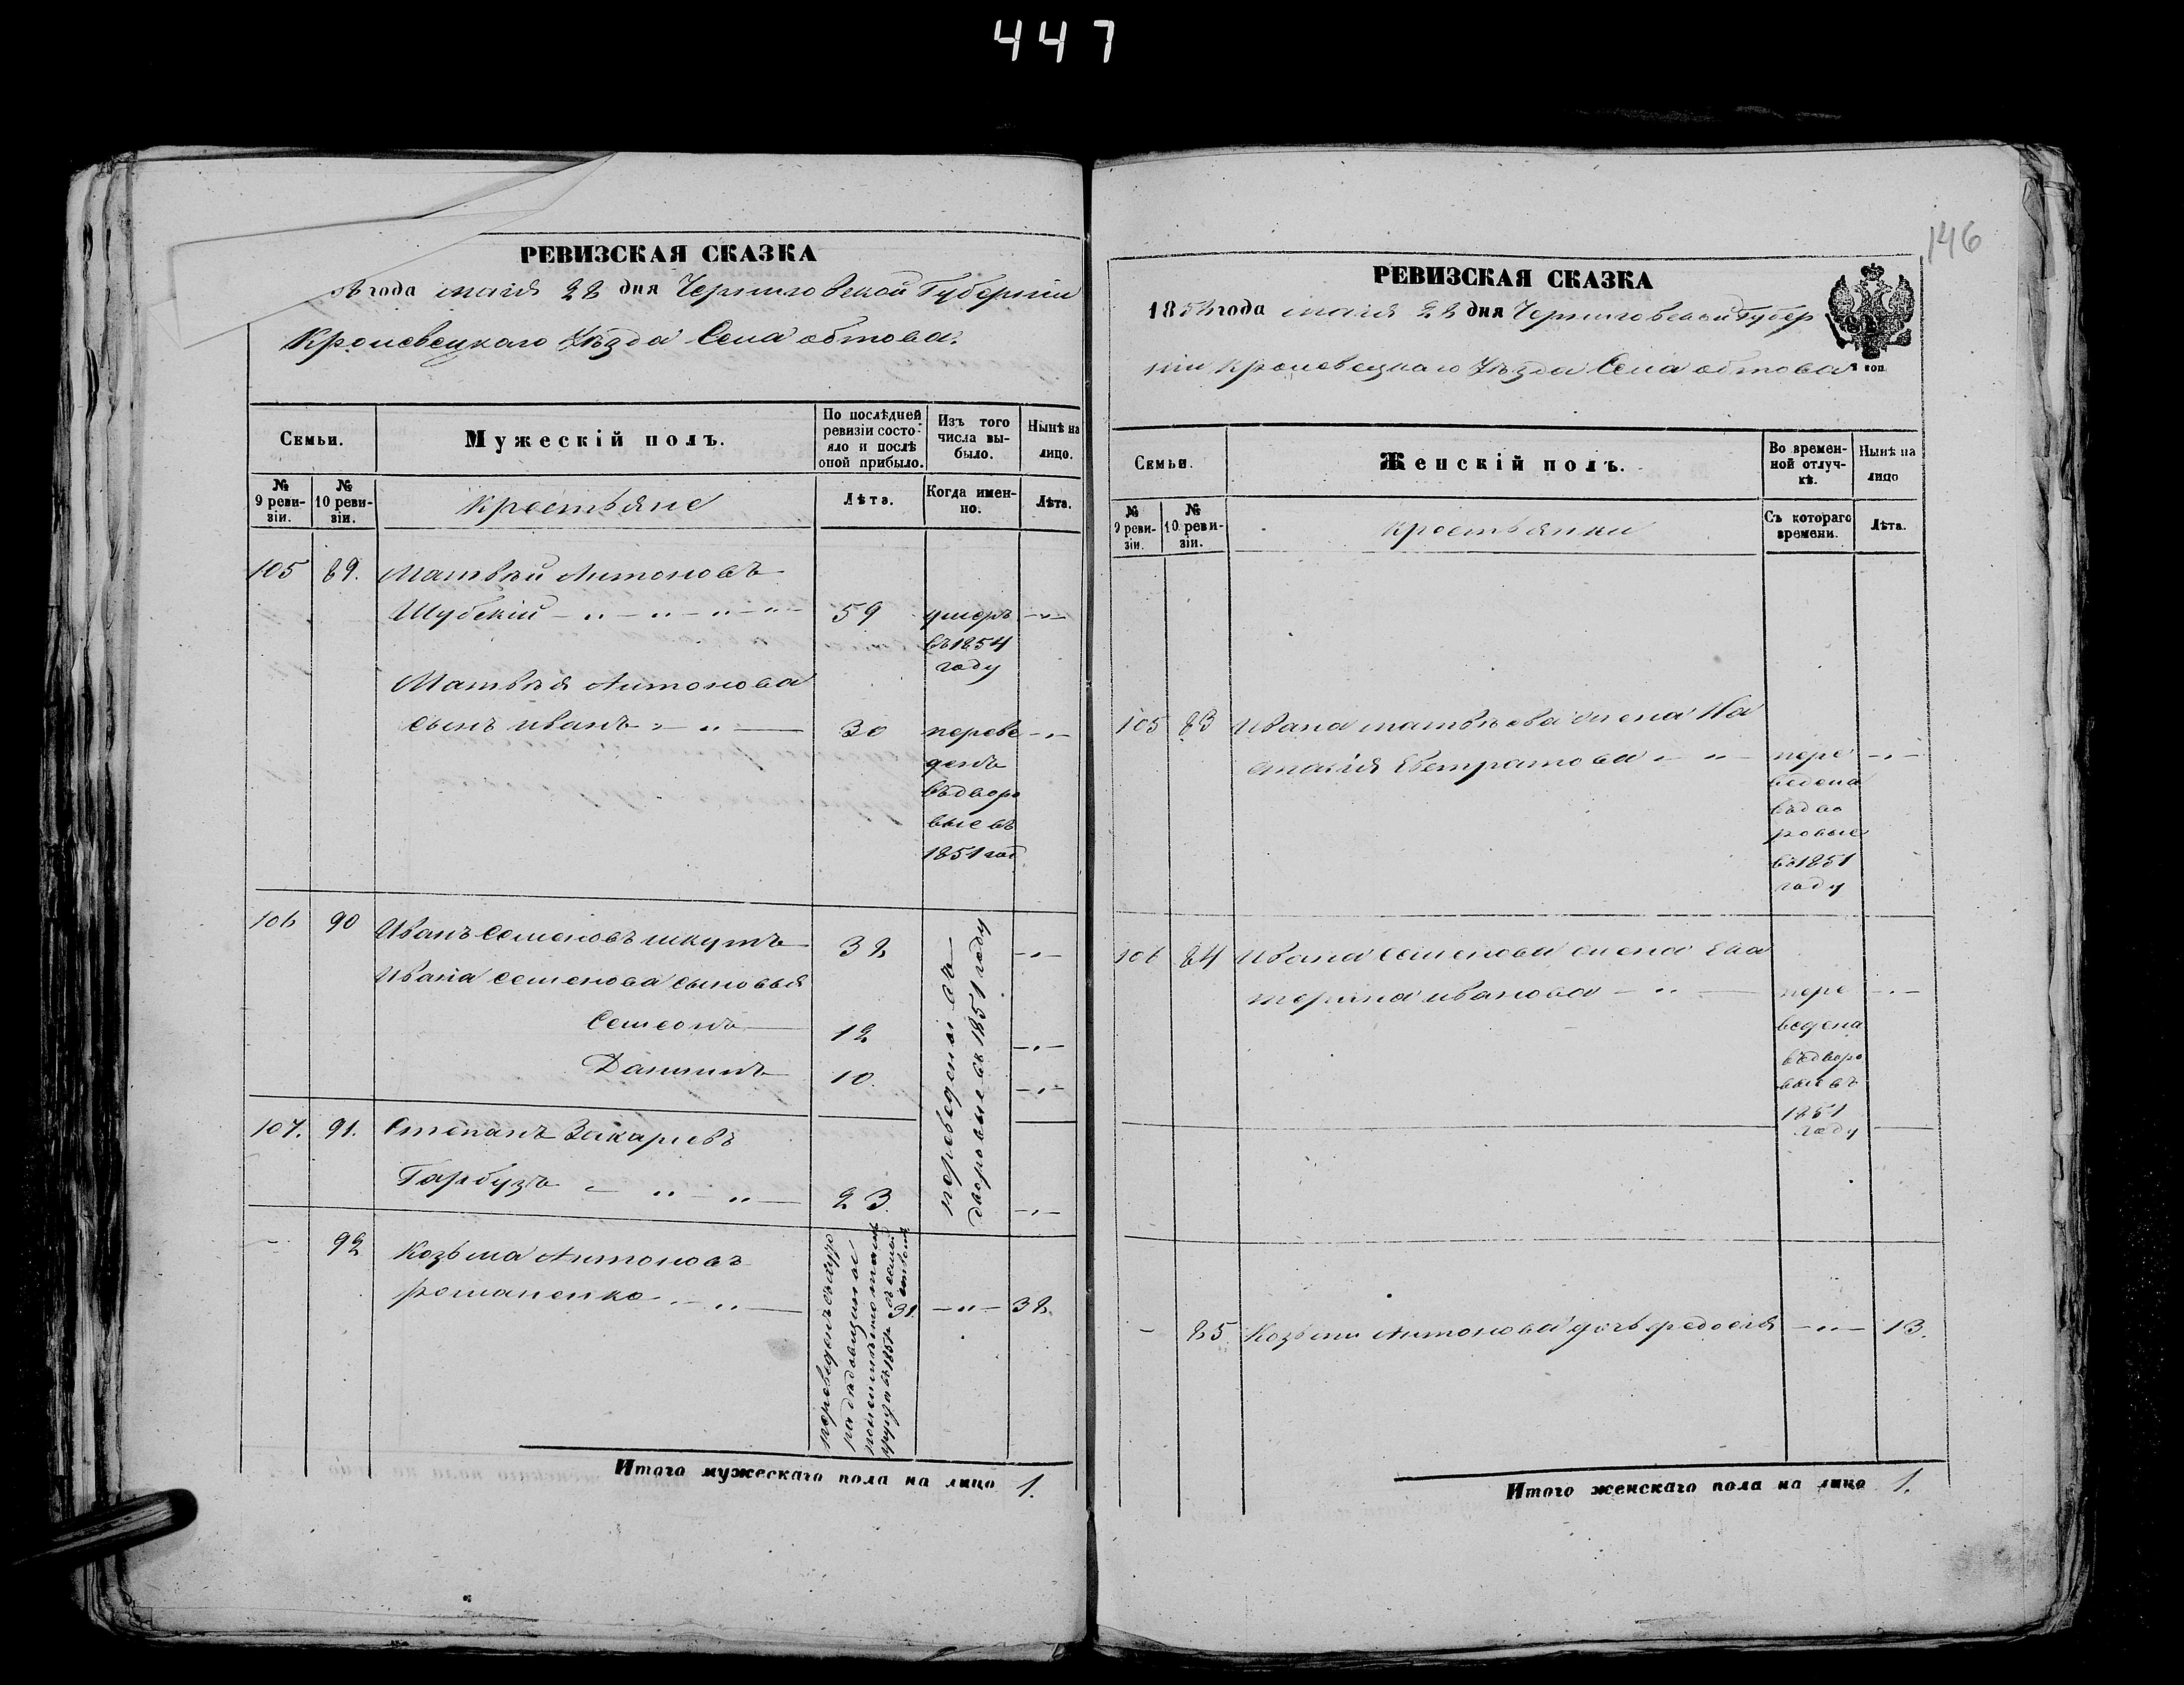 447
146
РЕВИЗСКАЯ СКАЗКА
года маія 22 дня Черниговской Губерніи
Кролевецкаго Уѣзда Села обтова.
Семьи.
Мужескій полъ.
По послѣдней ревизіи состояло и послѣ оной прибыло.
Изъ того числа выбыло.
Нынѣ на лицо.
№ 9 ревизіи.
№ 10 ревизіи.
Крестьяне
Лѣта.
Когда именно.
Лѣта.
105 89. Матвѣй Антоновъ
Шубскій 59 умеръ
въ 1854
году
Матвѣя Антонова
сынъ иванъ 30 переве
денъ
въ дворо
вые въ
1851 год
106 90 Иванъ Семеновъ шкутъ 32
Ивана Семенова сыновья
Семеонъ 12
Даніилъ 10.
переведены въ
дворовые въ 1851 году
107. 91. Степанъ Захаріевъ
Гарбузъ 23.
92 Козьма Антоновъ
романенко 31. 32.
Итого мужескаго пола на лицо 1.
РЕВИЗСКАЯ СКАЗКА
1858 года маія 22 дня Черниговской Губер
ніи Кролевецкаго Уѣзда Села обтова
коп.
Семьи.
Женскій полъ.
Во временной отлучкѣ.
Нынѣ на лицо
№ 9 ревизіи.
№ 10 ревизіи.
крестьянки
Съ котораго времени.
Лѣта.
105 83 Ивана матвѣева жена На
сталія Евстратова пере
ведена
въ дво
ровые
въ 1851
году
106 84 Ивана Семенова жена Ека
терина иванова пере
ведена
въ дворо
вые въ
1851
году
85. Козьмы Антонова дочь федосія 13.
Итого женскаго пола на лицо 1.